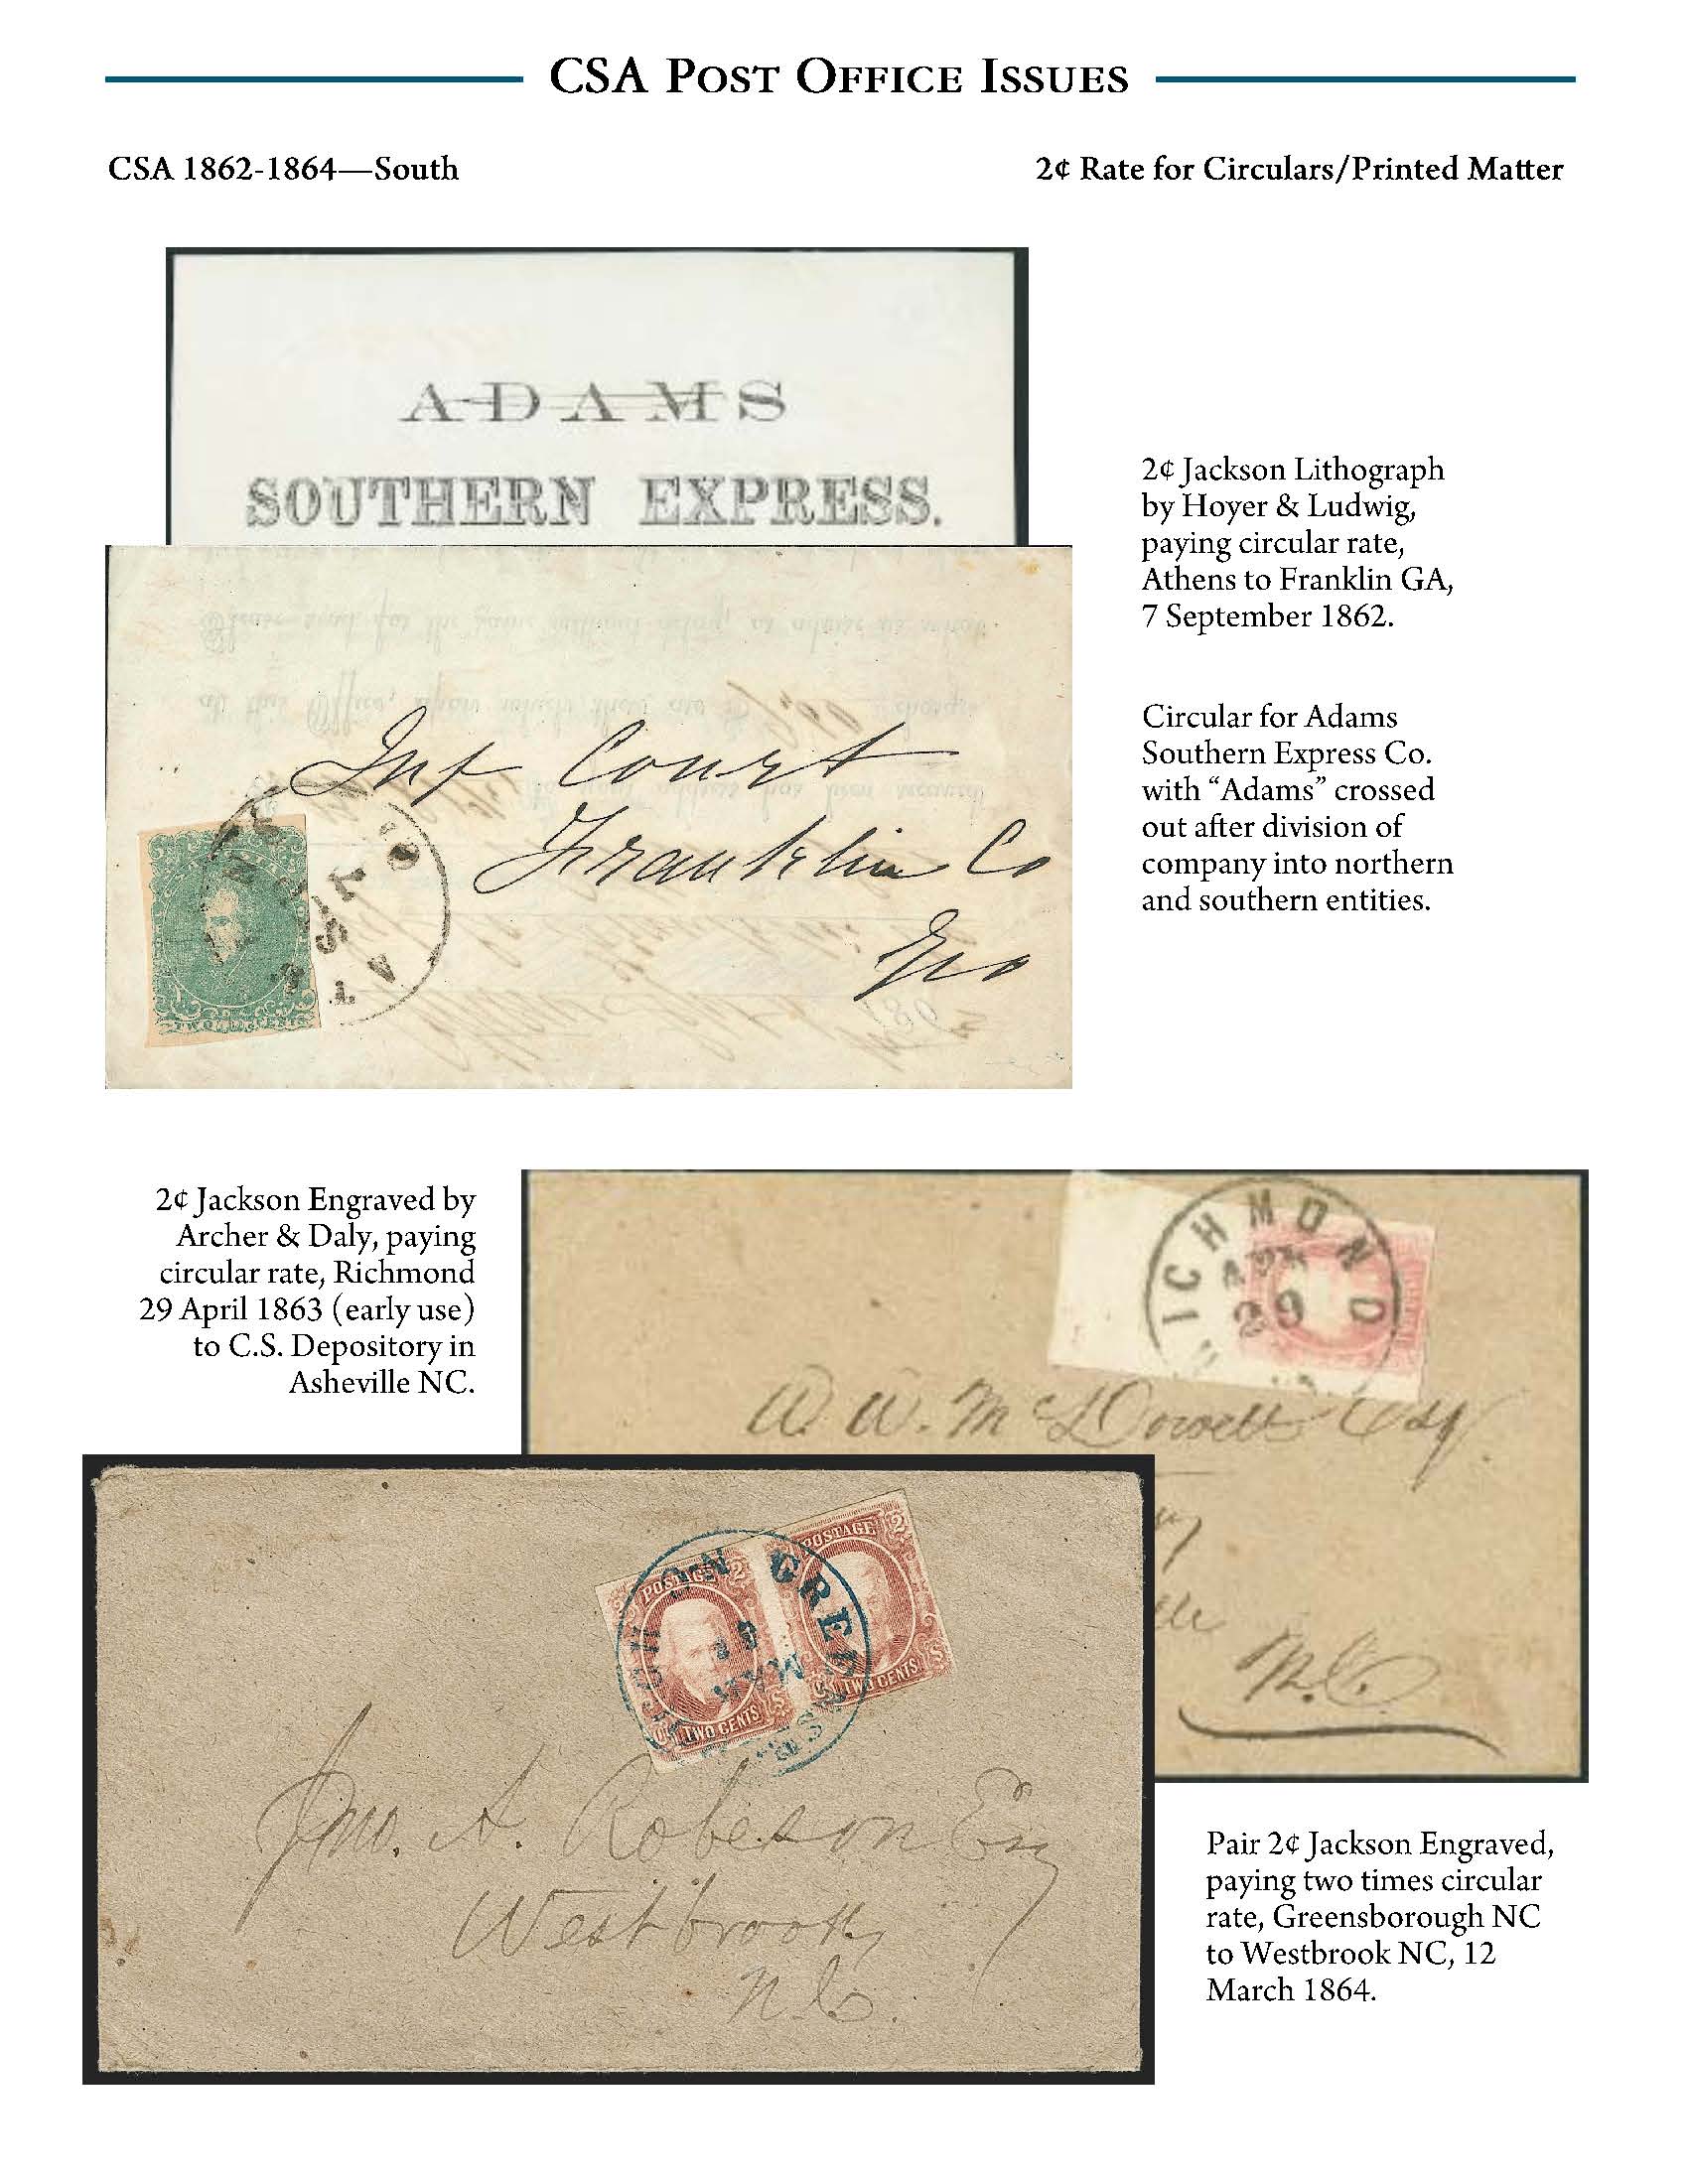 CSA Post Office Issues
CSA 1862-1864—South
2¢ Rate for Circulars/Printed Matter
ADAMS
SOUTHERN EXPRESS.
2¢ Jackson Lithograph
by Hoyer & Ludwig,
paying circular rate,
Athens to Franklin GA,
7 September 1862.
Circular for Adams
Southern Express Co.
with “Adams” crossed
out after division of
company into northern
and southern entities.
Inf Court
Franklin Co
Geo
2¢ Jackson Engraved by
Archer & Daly, paying
circular rate, Richmond
29 April 1863 (early use)
to C.S. Depository in
Asheville NC.
ICHMOND
APR
29
W. W. McDowell Esq
N.C.
POSTAGE 2
TWO CENTS
POSTAGE 2
TWO CENTS
GREENSBOROUGH
MAR
Jno. A. Robeson Esq
Westbrook
N.C.
Pair 2¢ Jackson Engraved,
paying two times circular
rate, Greensborough NC
to Westbrook NC, 12
March 1864.